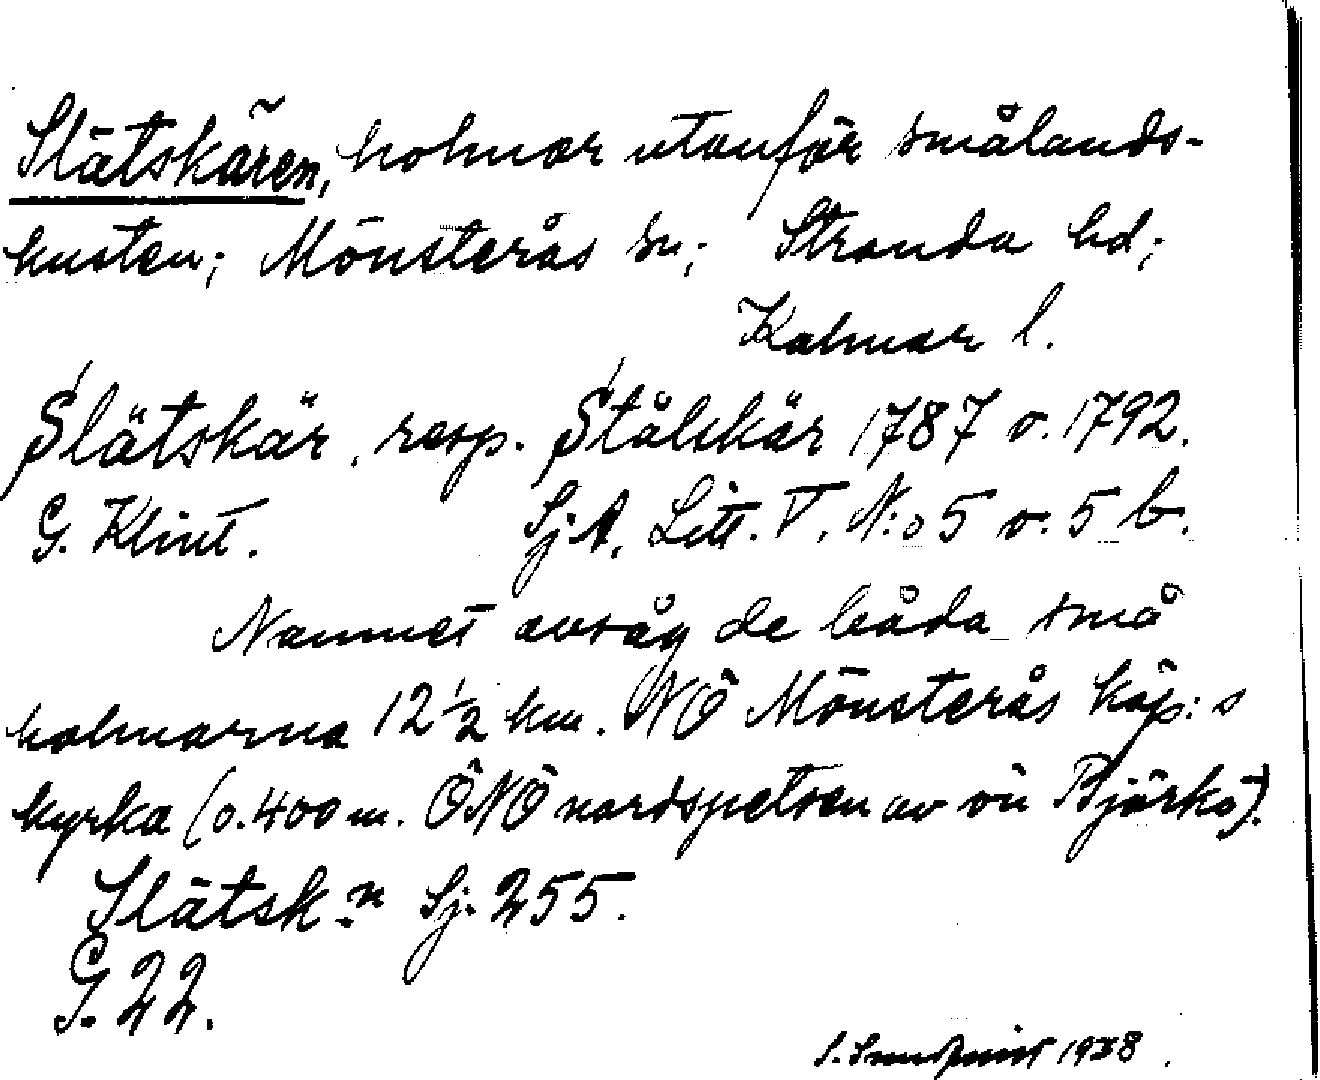 Slätskären, holmar utanför smålands-
kusten; Mönsterås sn; Stranda hd;
Kalmar l.
Slätskär, resp. Stålskär 1787 o. 1792.
G. Klint. Sj.A. Litt. V. N:o 5 o. 5 b.
Namnet avsåg de båda små
holmarna 12 1/2 km. NÖ Mönsterås köp:s
kyrka (o. 400 m. ÖNÖ nordspetsen av ön Björkö).
Slätsk:n Sj. 255.
G. 22.
1938.